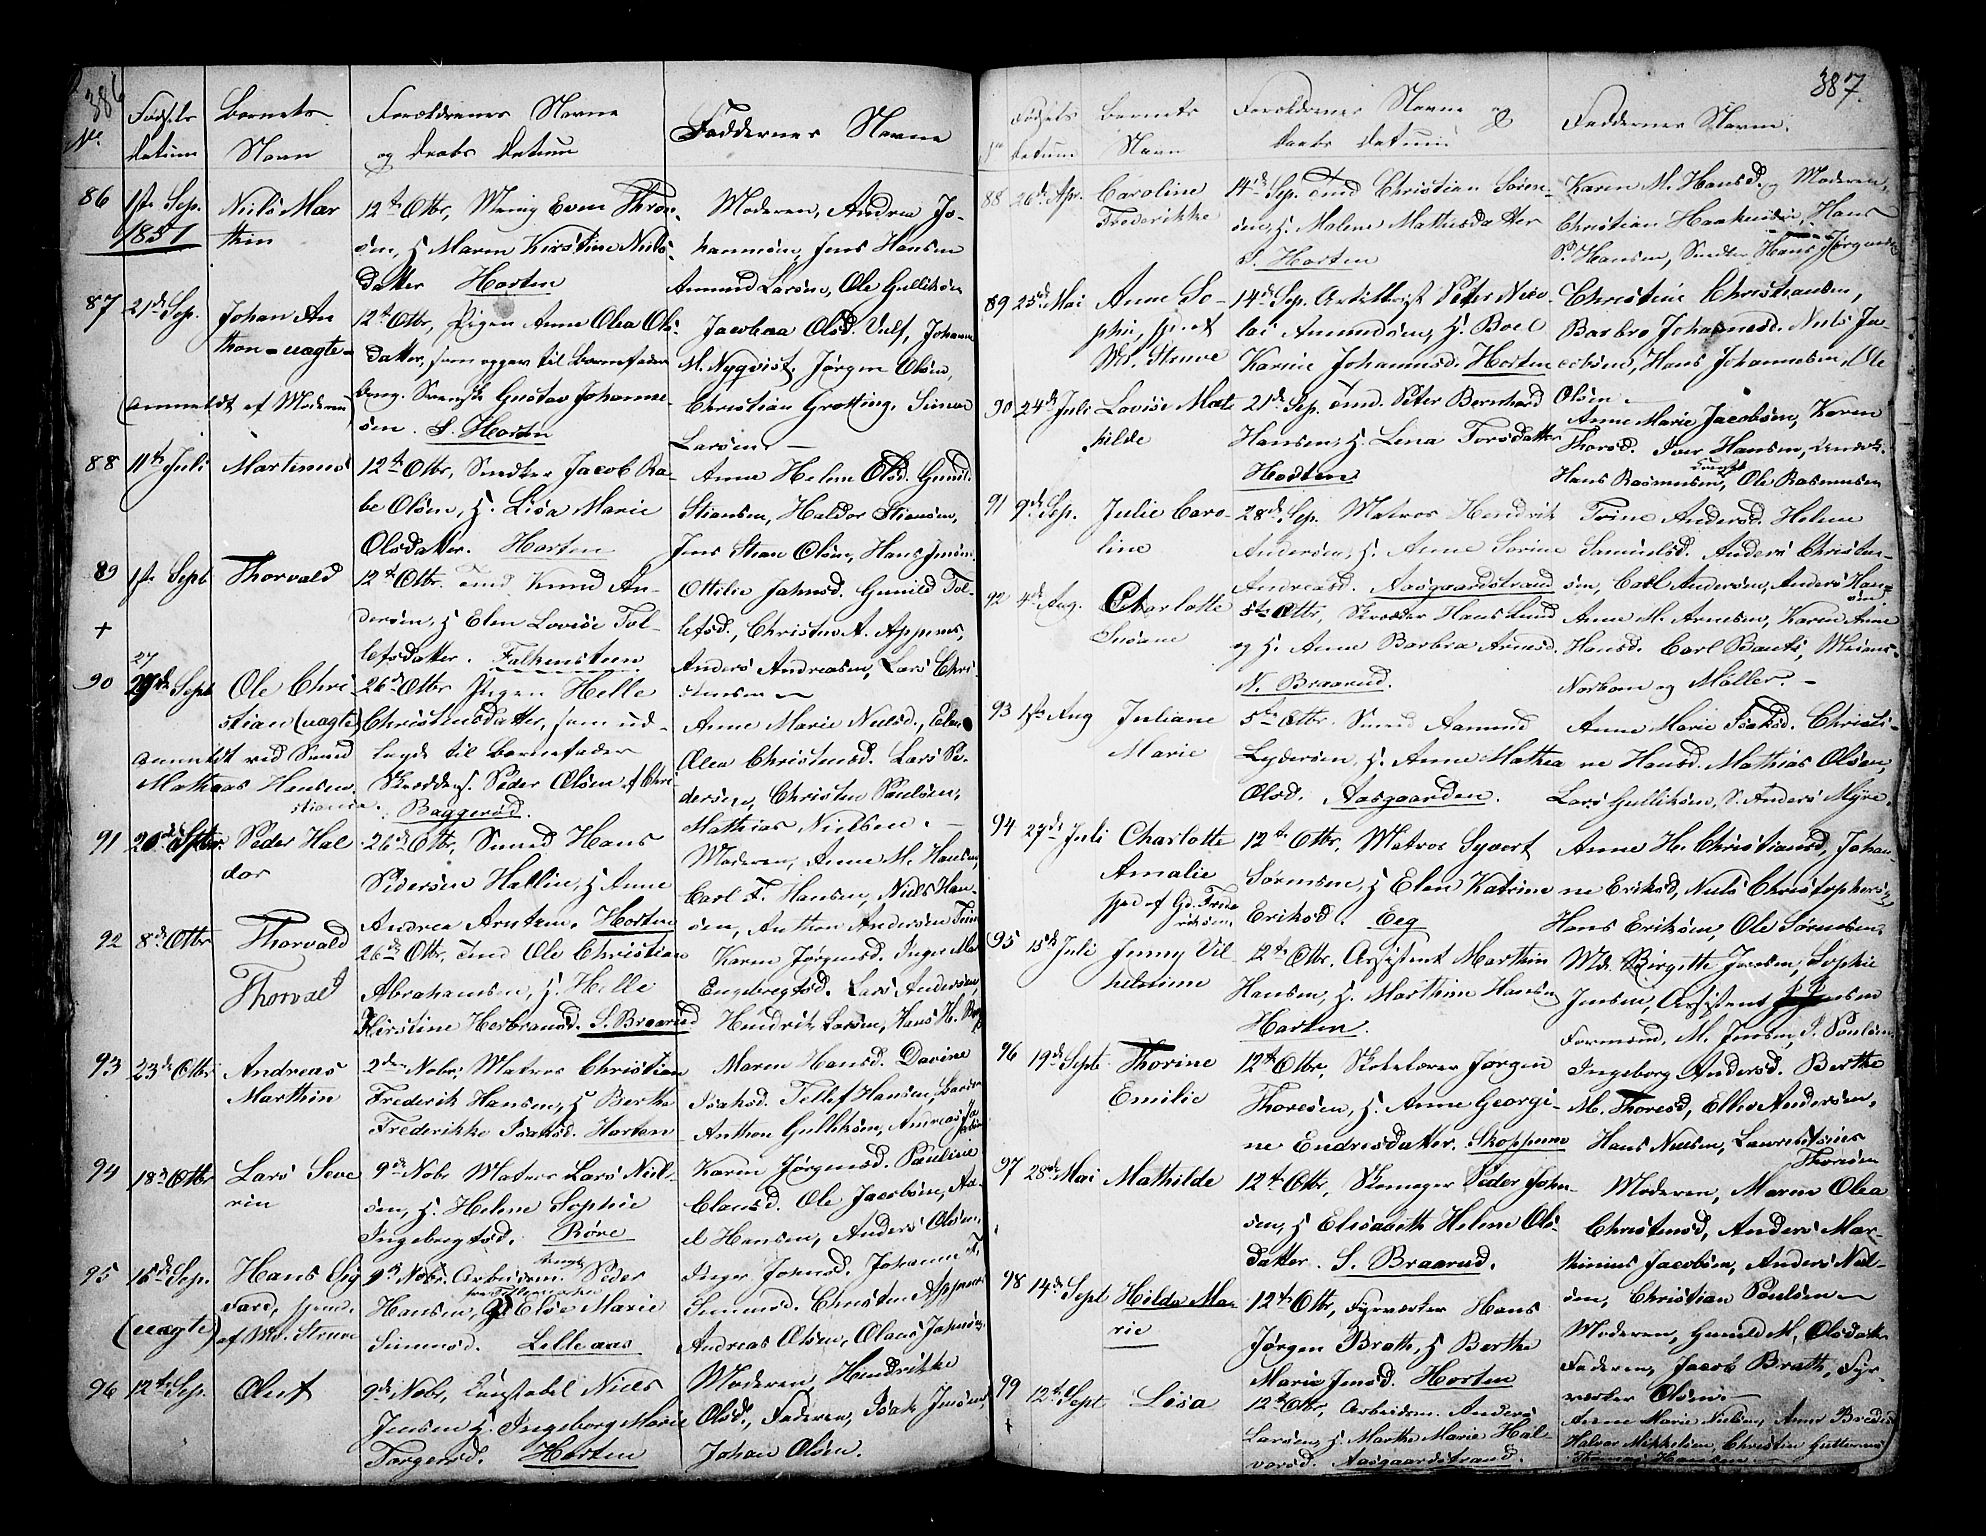 386
No Fødsels datum
Barnets Navn
Forældrenes Navne og daabs datum
Faddernes Navne
86 1ste Sep. 1851
Niels Marthin
12te Otbr,
Even Thron-
sen, H. Maren Kirstine Niels-
datter Horten
Moderen, Andrea Jo-
hannsen, Jens Hansen
Amund Larsen, Ole Gulliksen
87 21de Sep.
Johan An
thon - uægte -
(anmeldt af Moderen)
12te Otbr, Pigen Anne Olea Ols-
datter, som opgav til barnefader
Svenske Gustav Johanne-
sen. S. Horten
Jacobea Olsd. Ulf, Johanne
M. Nyqvist, Jørgen Olsen,
Christian Grotting, Simon
Larsen. -
88 11te Juli
Martinus
12te Otbr, Snedker Jacob Ra-
be Olsen, H. Lisa Marie
Olsdatter. Horten
Anne Helene Olsd. Gunild
Stiansen, Haldor Stiansen,
Jens Stian Olsen, Hans Jensen
89 1ste Sept
+
Thorvald
12te Otbr. Tmd Knud An-
dersen, H Elen Lovise Tol-
lefsdatter. Falkensteen
Ottilie Jahnsd. Gunild Tol-
lefsd., Christen A. Appenes,
Anders Andreasen, Lars Chri
stensen -
90 27 Sept
Ole Chri
stian (uægte)
anmeldt ved Smed
Mathias Hansen
26de Otbr Pigen Helle
Christensdatter, som ud-
lagde til barnefader
Peder Olsen af Chri-
stiania. Baggerød.
Anne Marie Nielsd.,
Olea Christensd. Lars Pe-
dersen, Christen Paulsen,
Mathias Nielsen. -
91 20de Septbr.
Peder Hal
dor
26de Otbr, Smed Hans
Pedersen Hallin, H Anne
Andrea Arntsen. Horten
Moderen, Anne M. Hansen,
Carl F. Hansen, Niels Han-
sen, Anthon Andersen
92 8de Otbr
Thorvald
Thorvald
26de Otbr, Tmd Ole Christian
Abrahamsen, H. Helle
Kirstine Herbransd. S. Braarud
Karen Jørgensd. Inger Marie
Engebregtsd. Lars Andersen,
Hendrik Larsen, Hans H.
93 23de Otbr
Andreas
Marthin
2den Nobr, Matros Christian
Frederik Hansen, H Berthe
Frederikke Isaksd. Horten
Maren Hansd. Davine
Isaksd. Tellef Hansen,
Anthon Gulliksen, Andreas
94 18de Otbr
Lars Seve
rin
9de Nobr Matros Lars Niel-
sen, H. Helene Sophie
Ingebregtsd. Røre
Karen Jørgensd. Pauline
Clausd. Ole Jacobsen,
Hansen, Anders Olsen.
95 15de Sep.
Hans Sig
vard,
(uægte) af Md. Struve
9de Nobr. Arbeidsm. Peder
Hansen, Else Marie
Simensd. Lilleaas
Inger Johnsd. Johanne T.
Simensd. Christen Appenes
Andreas Olsen, Olaus Johnsen
96 12te Sep.
Oluf
9de Nobr, Constabel Niels
Jensen H. Ingeborg Marie
Torgersd. Horten
Moderen, Hendrikke
Olsd., Faderen, Isak Jensen,
Johan Olsen.
387.
No Fødsels datum
Barnets Navn
Forældrenes Navne og daabs datum
Faddernes Navne.
88 26de Apr.
Caroline
Frederikke
14de Sep. Tmd Christian Søren-
sen, H. Malene Mathisdatter
S. Horten
Karen M. Hansd. og Moderen,
Christian Haakensen, Hans
P. Hansen, Snedker Hans Jørgensen
89 25de Mai
Anne So-
phie, pp. af
Md. Struve
14de Sep. Peter Nico-
lai Amundsen, H. Boel
Karine Johannesd. Horten
Christine Christiansen,
Barbro Johannesd. Niels Ja-
cobsen, Hans Johannesen, Ole
Olsen -
90 24de Juli
Lovise Mat
hilde
21de Sep. Tmd. Peter Bernhard
Hansen, H. Lena Torsdatter
Horten.
Anne Marie Jacobsen, Karen
Thorsd. Iver Hansen,
Hans Rasmussen, Ole Rasmussen
91 9de Sep.
Julie Caro-
line
28de Sep. Matros Hendrik
Andersen, H. Anne Sorine
Andreasd. Aasgaardstrand
Trine Andersd. Helene
Samuelsd. Anders Christen-
sen, Carl Andersen, Anders Han-
sen.
92 4de Aug.
Charlotte
Susane
5te Otbr, Skræder Hans Lund
og H. Anne Barbra Arnesd.
N. Braarud.
Anne M. Arnesen, Karen Anne
Hansd. Carl Bants,
Norbom og Møller. -
93 1ste Aug
Juliane
Marie
5te Otbr. Smed Aamund
Lydersen, H. Anne Mathea
Olsd. Aasgaarden.
Anne Marie Isaksd. Christi-
ne Hansd. Mathias Olsen,
Lars Gulliksen, S. Anders Myre.
94 27de Juli
Charlotte
Amalie
12te Otbr. Matros Syvert
Sørensen, H Elen Katrine
Eriksd. Eeg
Anne H. Christiansd, Johan-
ne Eriksd, Niels Christophers
Hans Eriksen, Ole Sørensen.
95 15de Juli
Jenny Vil-
helmine
12te Otbr. Assistent Marthin
Hansen, H. Marthine Hansen
Horten.
Md. Birgitte Jensen, Sophie
Jensen, Assistent Jensen
Formsund, M. Jensen, P. Paulsen.
96 19de Septr
Thorine
Emilie
12te Otbr, Skolelærer Jørgen
Thoresen, H. Anne Georgi-
ne Endresdatter. Skoppum
Ingeborg Andersd. Berthe
M. Thoresd, Ellev Andersen,
Hans Nielsen, Lauretsius
Thoresen
97 28de Mai
Mathilde
12te Otbr, Skomager Peder John-
sen, H Elisabeth Helene Ols-
datter. S. Braarud.
Moderen, Maren Olea
Christensd, Anders Mar-
thinius Jacobsen, Anders Niel-
sen, Christian Paulsen -
98 14de Sept
Hilda Ma-
rie
12te Otbr, Fyrværker Hans
Jørgen Brath, H Berthe
Marie Jensd. Horten
Moderen, Gunild M. Olsdatter
Faderen, Jacob Brath, Fyr-
værker Olsen. -
99 12te Sept
+
Lisa
12te Otbr, Arbeidsm. Anders
Larsen, H. Marthe Marie Hal-
vorsd. Aasgaardstrand.
Anne Marie Nielsen, Anne
Halvor Mikkelsen, Christen Guttormsen
Thomas Hansen -